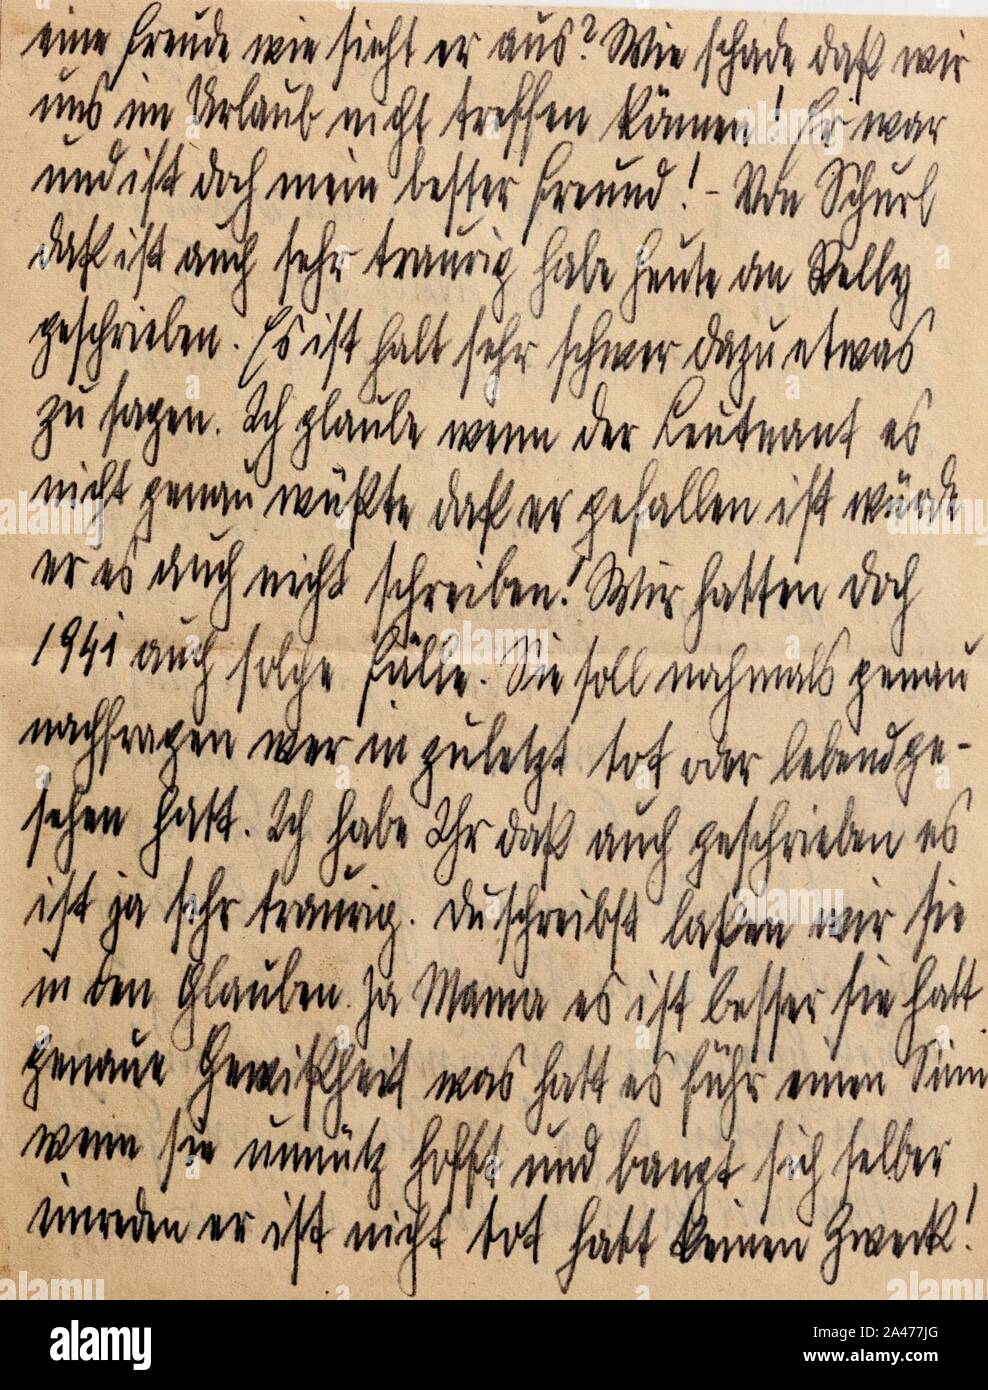 eine Freude wie sieht er aus? Wie schade daß wir
uns im Urlaub nicht treffen können! Er war
und ist doch mein bester Freund! - Von Schurl
daß ist auch sehr traurig habe heute an Nelly
geschrieben. Es ist halt sehr schwer dazu etwas
zu sagen. Ich glaube wenn der Leutnant es
nicht genau wüßte daß er gefallen ist würde
er es auch nicht schreiben! Wir hatten doch
1941 auch solche Fälle. Sie soll nochmals genau
nachfragen wer in zuletzt tot oder lebend ge-
sehen hatt. Ich habe Ihr daß auch geschrieben es
ist ja sehr traurig. Du schreibst laßen wir sie
in den Glauben. Ja Mama es ist besser sie hatt
genaue Gewißheit was hatt es führ einen Sinn
wenn sie unnütz hofft und bangt sich selber
einreden er ist nicht tot hatt keinen Zweck!
alamy
Image ID: 2A477JG
www.alamy.com